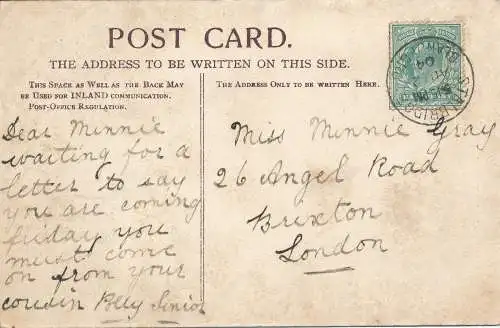 POST CARD.
THE ADDRESS TO BE WRITTEN ON THIS SIDE.
THIS SPACE AS WELL AS THE BACK MAY
BE USED FOR INLAND COMMUNICATION.
POST-OFFICE REGULATION.
THE ADDRESS ONLY TO BE WRITTEN HERE.
Dear Minnie
waiting for a
letter to say
you are coming
friday you
must come
on from your
cousin Polly Senior
Miss Minnie Gray
26 Angel Road
Brixton
London